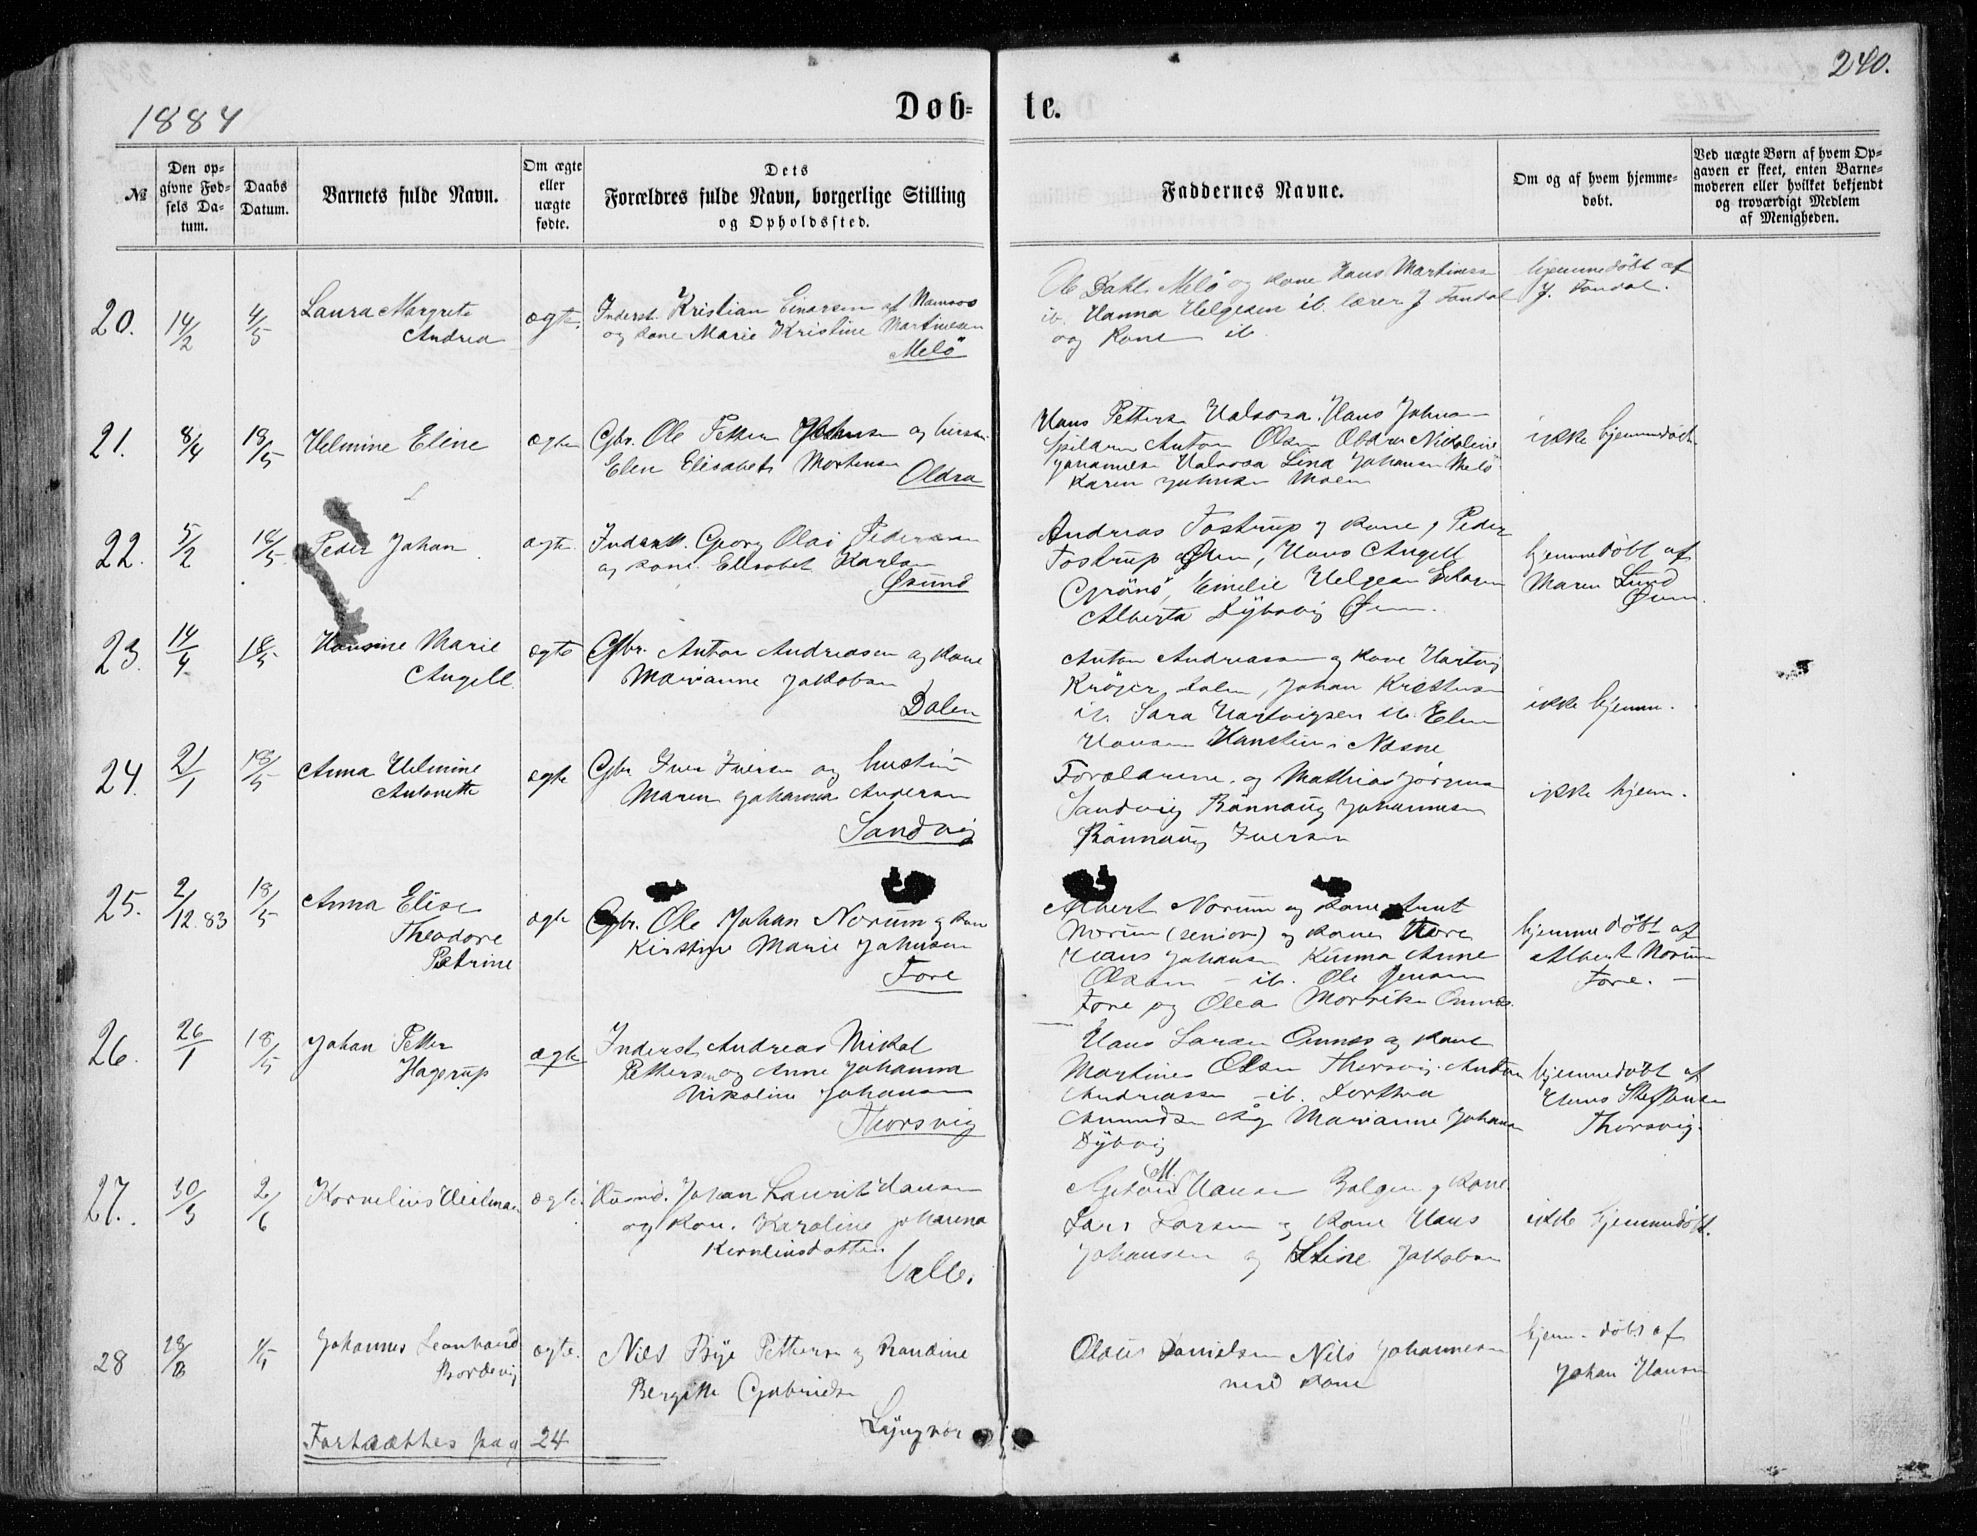 240.
1884
Døb=
te.
№
Den op=
givne Fød=
sels Da=
tum.
Daabs
Datum.
Barnets fulde Navn.
Om ægte
eller
uægte
fødte.
Dets
Forældres fulde Navn, borgerlige Stilling
og Opholdssted.
Faddernes Navne.
Om og af hvem hjemme=
døbt.
Ved uægte Børn af hvem Op=
gaven er skeet, enten Barne=
moderen eller hvilket bekjendt
og troværdigt Medlem
af Menigheden.
20.
14/2
4/5
Laura Margrete
Andrea
ægte.
Inderst Kristian Einarsen af Namsos
og kone Marie Kristine Martinesen
Melö
Ole Dahl Melö og kone Hans Martinssen
ib. Hanna Helgesen ib. lærer J Fondal
og Kone ib.
hjemmedöbt af
J. Fondal.
21.
8/4
18/5
Helmine Eline
ægte
Gbr. Ole Petter Johnsen og hustru
Elen Elisabet Mortensen
Oldra
Hans Petterse Halsosa. Hans Johnsen
Spildra Anton Olsen Oldra Nikoline
Johannesen Halsosa Lina Johansen Melö
Karen Johnsen Moen
ikke hjemmedöbt
22.
5/2
18/5
Peder Johan
ægte
Inderst. Georg Olai Pedersen
og kone. Elisabet Karlsen
Øsund
Andreas Tostrup og kone, Peder
Tostrup Øren, Hans Angell
Grönö, Emilie Helgesen
Alberta Dybvig
hjemmedöbt af
Maren Lund
23.
14/4
18/5
Hansine Marie
Angell.
ægte
Gbr. Anton Andreasen og kone
Marianne Jakobsen
Dalen
Anton Andreassen og kone Hartvig
Kröjer Dalen, Johan Kristensen
ib. Sara Hartvigsen ib. Elen
Hansen Nesne
ikke hjemm.
24.
21/1
18/5
Anna Helmine
Antonette
ægte
Gbr Iver Iversen og hustru
Maren Johanna Andersen
Sandvig
Forældrene. og Mathias Jörgensen
Sandvig Rönnaug Johannesen
Rönnaug Iversen
ikke hjem.
25.
2/12.83
18/5
Anna Elise
Theodore
Petrine
ægte
Gbr. Ole Johan Norum og kone
Kirstine Marie Johnsen
Fore
Albert Norum og kone Arnt
Norum (senior) og kone Fore
Hans Johansen Kunna Anne
Olsen — ib. Ole Jensen
Fore og Olea Morvika
hjemmedöbt af
Albert Norum
Fore. —
26.
26/1
18/5
Johan Petter
Hagerup
ægte
Inderst Andreas Mikal
Pettersen og Anne Johanna
Nikoline Johansen
Thorsvig
Hans Larsen og kone
Martines Olsen Thorsvig. Anton
Andreassen ib. Dorthea
Amundsen Åg Marianne Johansen
Dybvig
hjemmedöbt af
Hans Steffensen
Thorsvig.
27.
30/3
2/6
Kornelius Heilman
ægte.
Husmd. Johan Laurits Hansen
og kone. Karoline Johanna
Kornelinsdatter
Valle.
Anton M. Hansen Bolgen og kone
Lars Larsen og kone Hans
Johansen og Stine Jakobsen
ikke hjemmedöbt.
28
Johannes Leonhard
Bordevig
ægte.
Nils Bye Pettersen og Randine
Bergitte Gabrielsen
Lyngvær
Olaus Danielsen Nils Johannesen
med kone
hjem. döbt af
Johan Hansen
Fortsættes pag 24